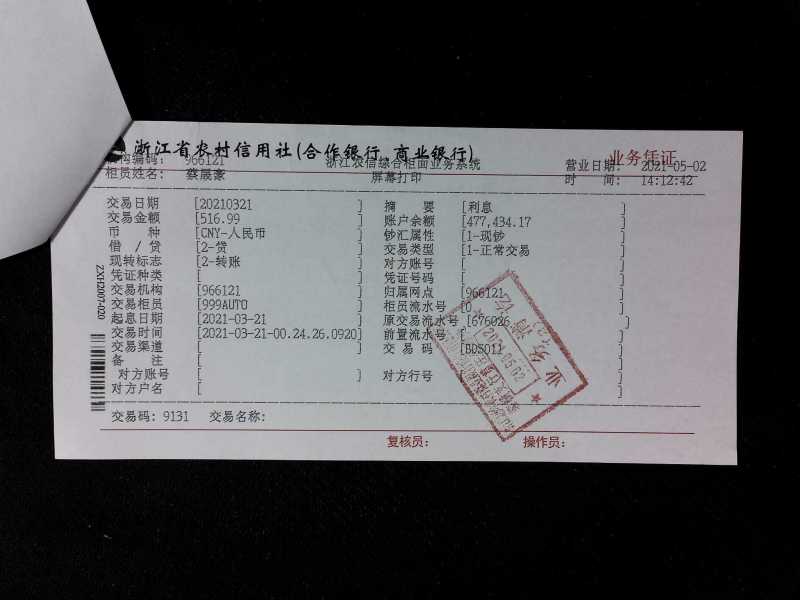 浙江省农村信用社(合作银行、商业银行)
业务凭证
机构编码: 966121 浙江农信综合柜面业务系统 营业日期: 2021-05-02
柜员姓名: 蔡晨豪 屏幕打印 时 间: 14:12:42
交易日期 [20210321 ] 摘 要 [利息 ]
交易金额 [516.99 ] 账户余额 [477,434.17 ]
币 种 [CNY-人民币 ] 钞汇属性 [1-现钞 ]
借 / 贷 [2-贷 ] 交易类型 [1-正常交易 ]
现转标志 [2-转账 ] 对方账号 [ ]
凭证种类 [ ] 凭证号码 [ ]
交易机构 [966121 ] 归属网点 [966121 ]
交易柜员 [999AUTO ] 柜员流水号 [0 ]
起息日期 [2021-03-21 ] 原交易流水号 [676026 ]
交易时间 [2021-03-21-00.24.26.0920] 前置流水号 [ ]
交易渠道 [ ] 交 易 码 [BDS011 ]
备 注 [ ]
对方账号 [ ] 对方行号 [ ]
对方户名 [ ]
交易码: 9131 交易名称:
复核员: 操作员:
业务清讫